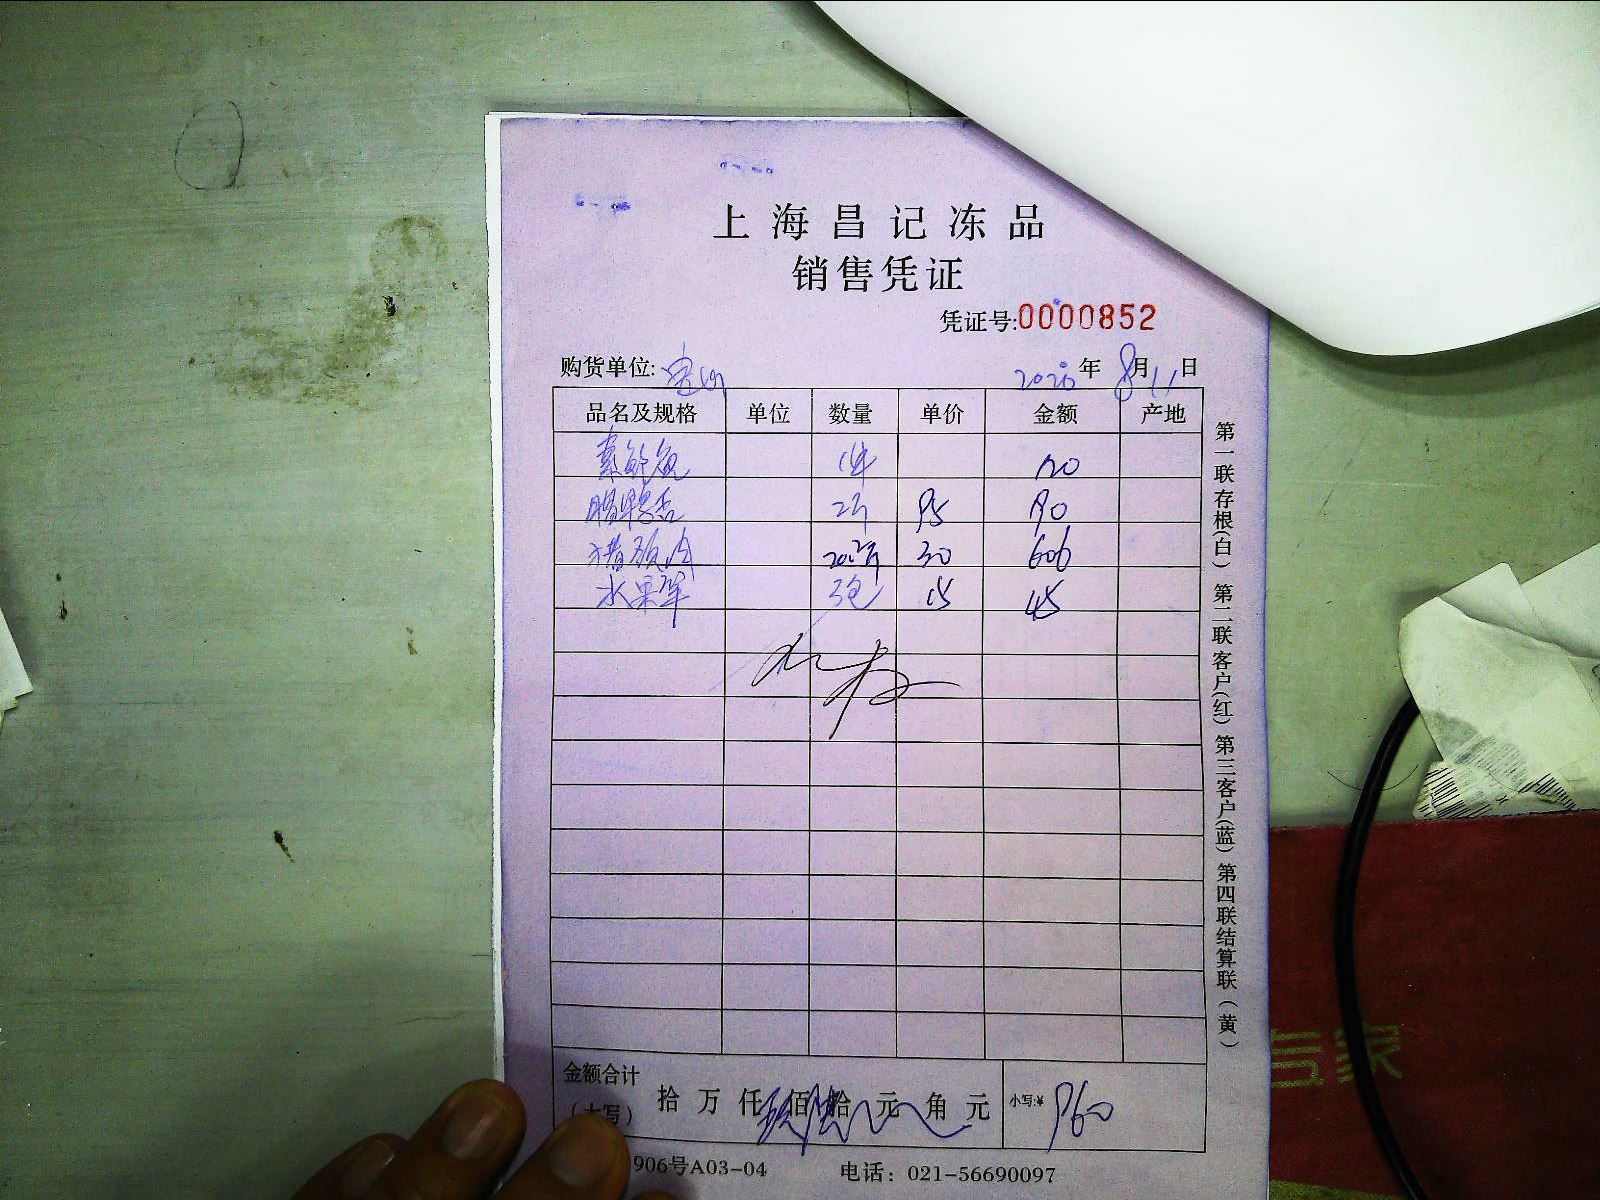 上海昌记冻品
销售凭证
凭证号:0000852
购货单位: 2020年8月11日
品名及规格 单位 数量 单价 金额 产地
素鲍鱼 1件 120
鸭舌 2斤 95 190
猪颈肉 20.2斤 30 606
水果 3包 15 45
金额合计
(大写) 拾 万 仟 玖 佰 陆 拾 元 角 元 小写:¥ 960
906号A03-04 电话: 021-56690097
第一联存根(白) 第二联客户(红) 第三客户(蓝) 第四联结算联(黄)
专家